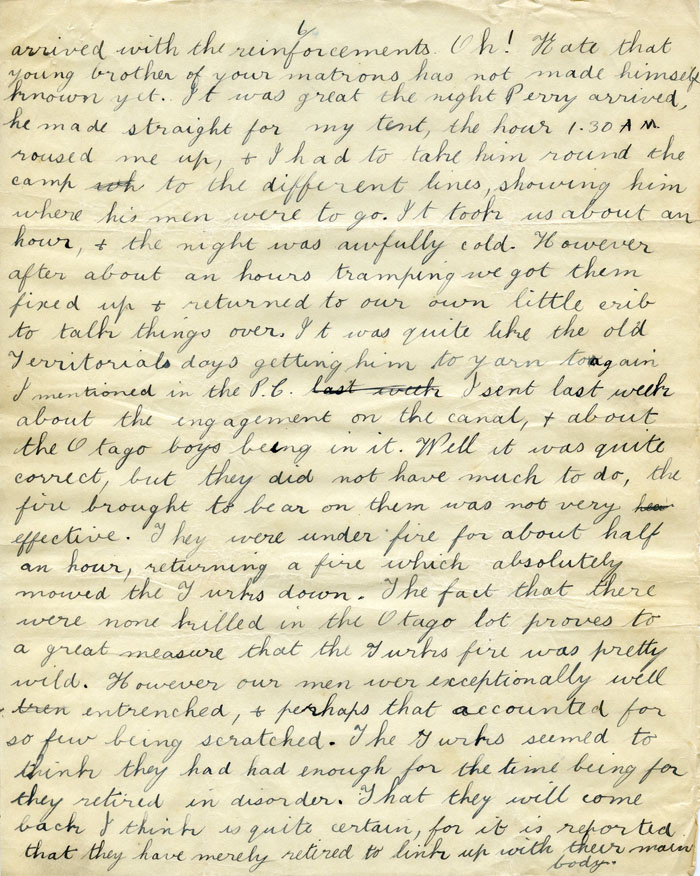 6
arrived with the reinforcements. Oh! Kate that
young brother of your matrons has not made himself
known yet. It was great the night Perry arrived,
he made straight for my tent, the hour 1.30 AM
roused me up, & I had to take him round the
camp to the different lines, showing him
where his men were to go. It took us about an
hour, & the night was awfully cold. However
after about an hours tramping we got them
fixed up & returned to our own little crib
to talk things over. It was quite like the old
Territorials days getting him to yarn to again
I mentioned in the P.C. last week I sent last week
about the engagement on the canal, & about
the Otago boys being in it. Well it was quite
correct, but they did not have much to do, the
fire brought to bear on them was not very
effective. They were under fire for about half
an hour, returning a fire which absolutely
mowed the Turks down. The fact that there
were none killed in the Otago lot proves to
a great measure that the Turks fire was pretty
wild. However our men wer exceptionally well
entrenched, & perhaps that accounted for
so few being scratched. The Turks seemed to
think they had had enough for the time being for
they retired in disorder. That they will come
back I think is quite certain, for it is reported
that they have merely retired to link up with their main
body.